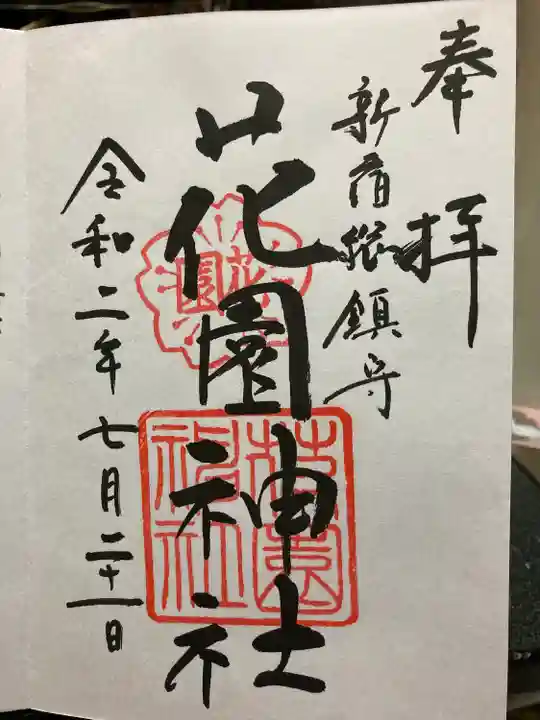 奉拝
新宿総鎮守
花園神社
花園
花園神社
令和二年七月二十一日